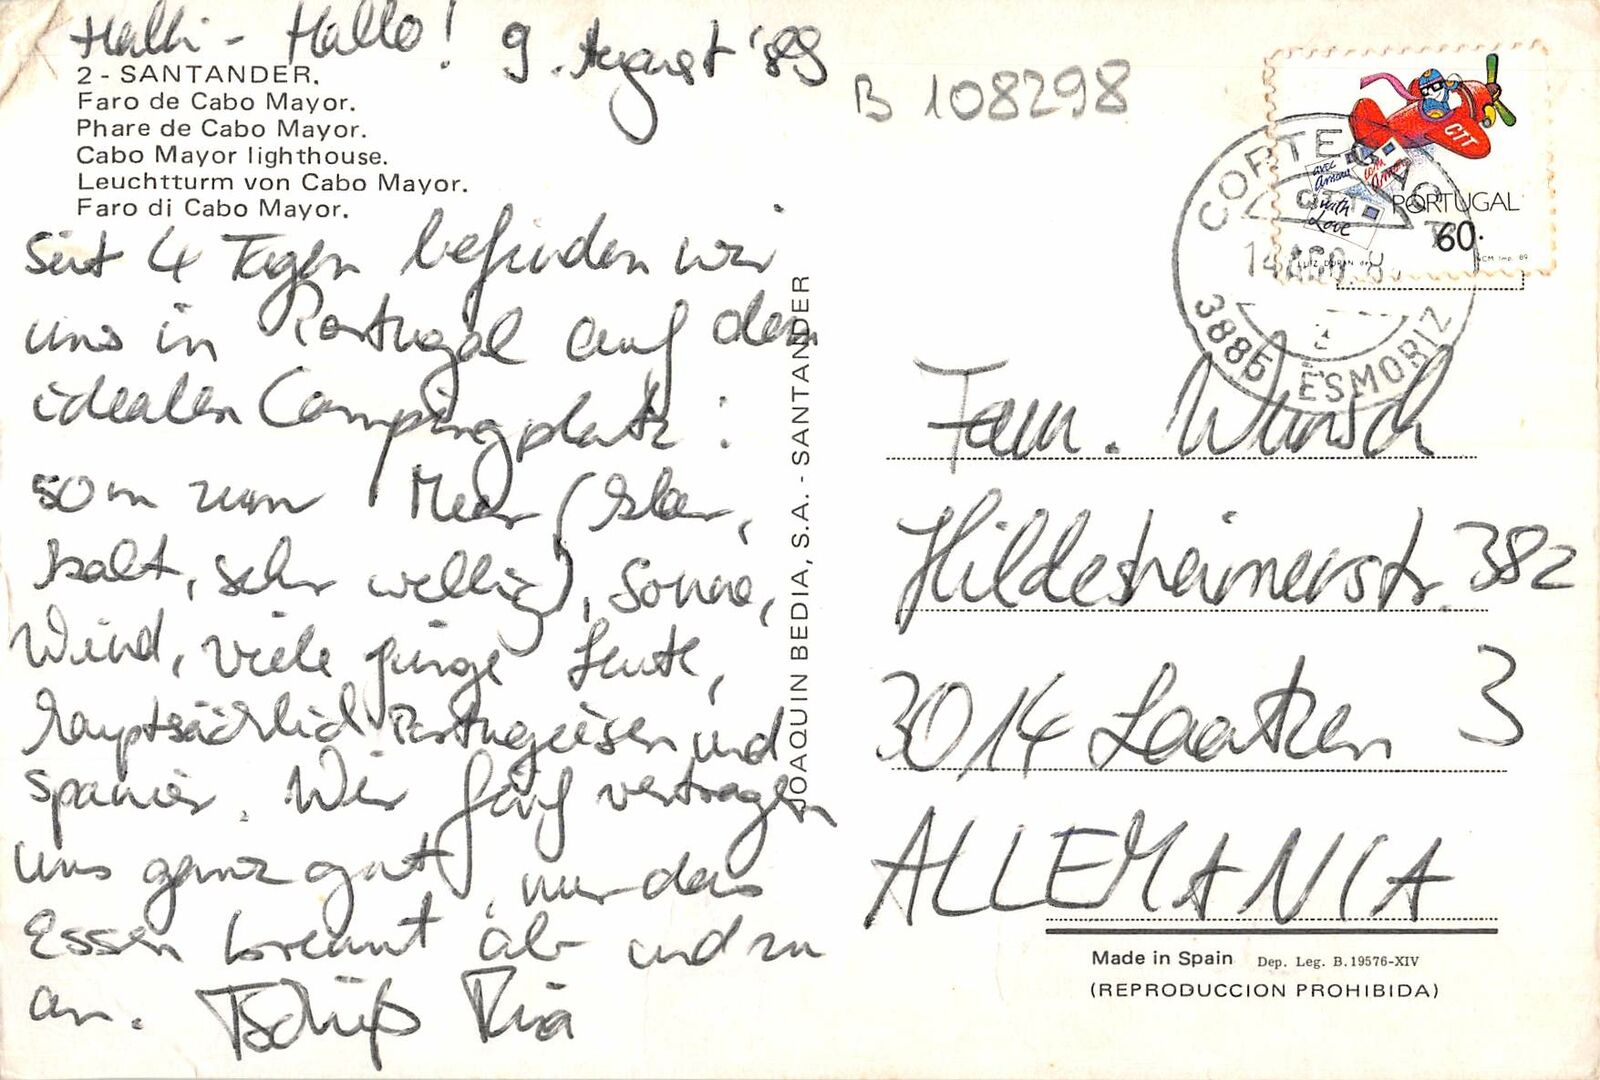 Halli - Hallo! 9. August '89
2 - SANTANDER.
Faro de Cabo Mayor.
Phare de Cabo Mayor.
Cabo Mayor lighthouse.
Leuchtturm von Cabo Mayor.
Faro di Cabo Mayor.
Seit 4 Tagen befinden wir
uns in Portugal auf dem
idealen Campingplatz:
50m zum Meer (klar,
kalt, sehr wellig), Sonne,
Wind, viele junge Leute,
hauptsächlich Portugiesen und
Spanier. Wir fünf vertragen
uns ganz gut, nur das
Essen brennt ab und zu
an. Tschüß
JOAQUIN BEDIA, S.A. - SANTANDER
B 108298
CTT
avec amour
com Amor
with Love
PORTUGAL
60.
LUIZ DURAN
CM Imp. 89
CORTEGAÇA
3885 ESMORIZ
Fam. Wunsch
Hildesheimerstr. 382
3014 Laatzen 3
ALLEMANIA
Made in Spain Dep. Leg. B. 19576-XIV
(REPRODUCCION PROHIBIDA)